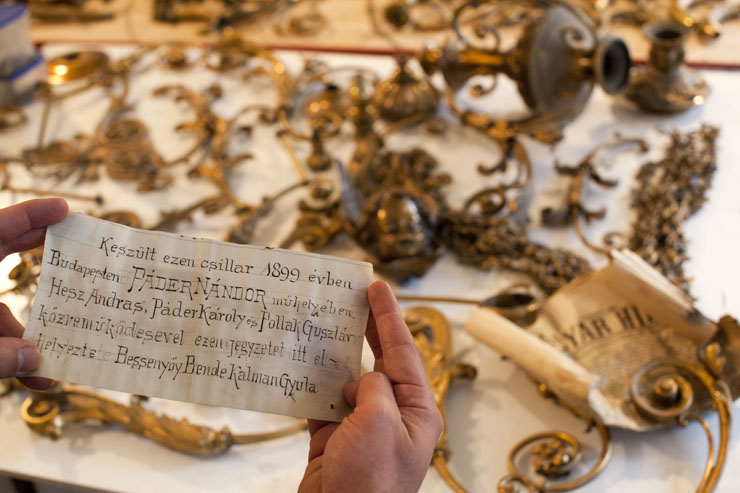 Készült ezen csillar 1899 évben
Budapesten PÁDER NÁNDOR műhelyében.
Hesz András, Páder Károly és Pollák Gusztáv
közreműködésével ezen jegyzetet itt el -
helyeztete Bessenyőy Bende Kálmán Gyula
YAR HI